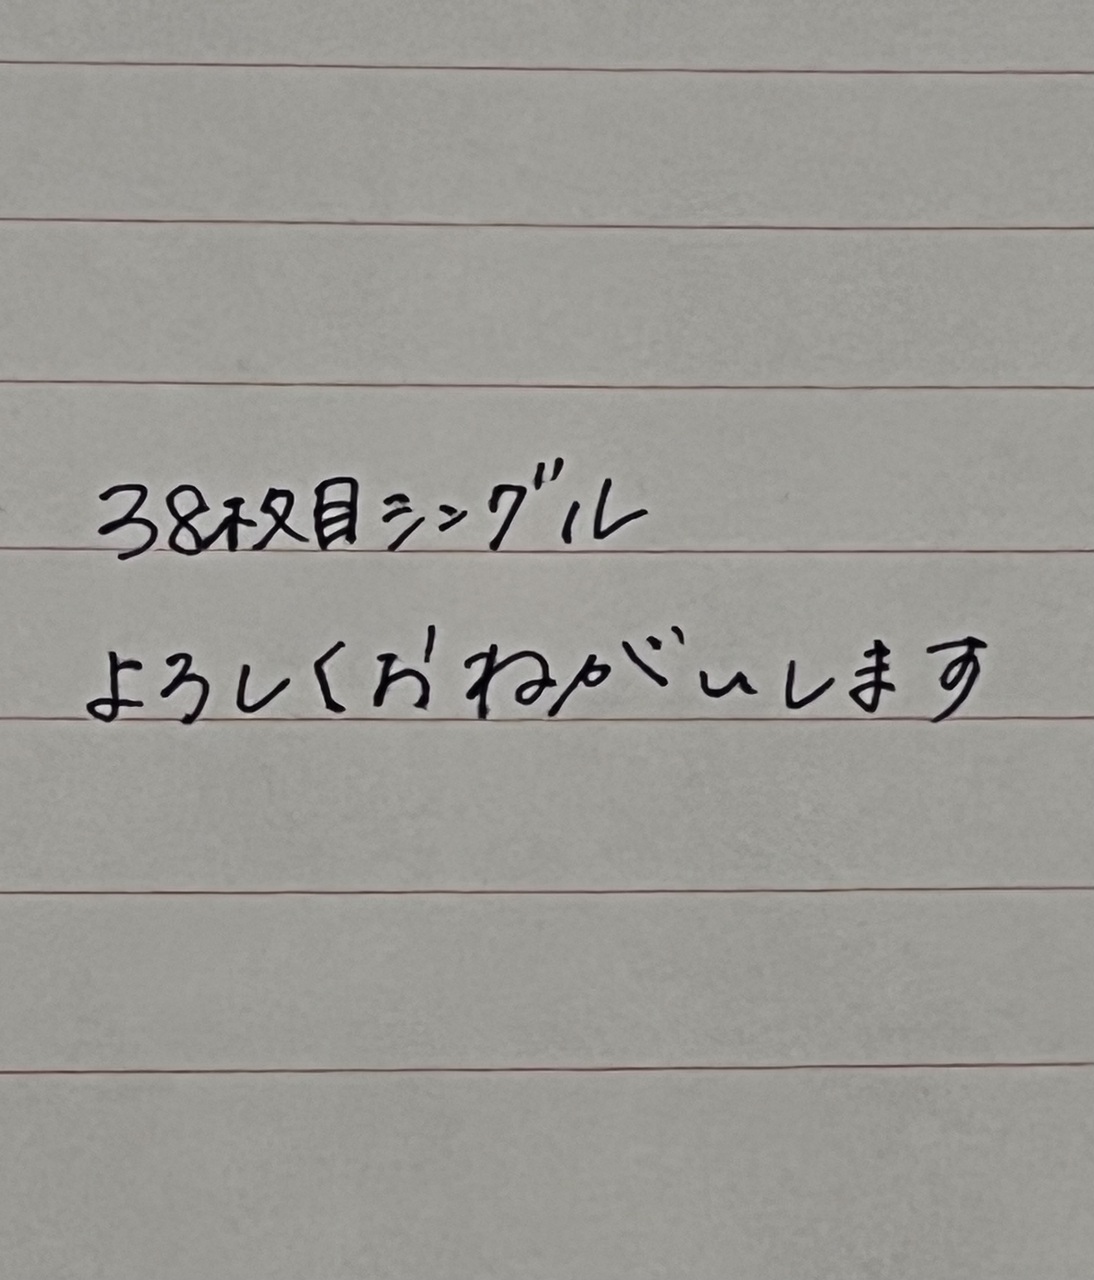 38枚目シングル
よろしくおねがいします